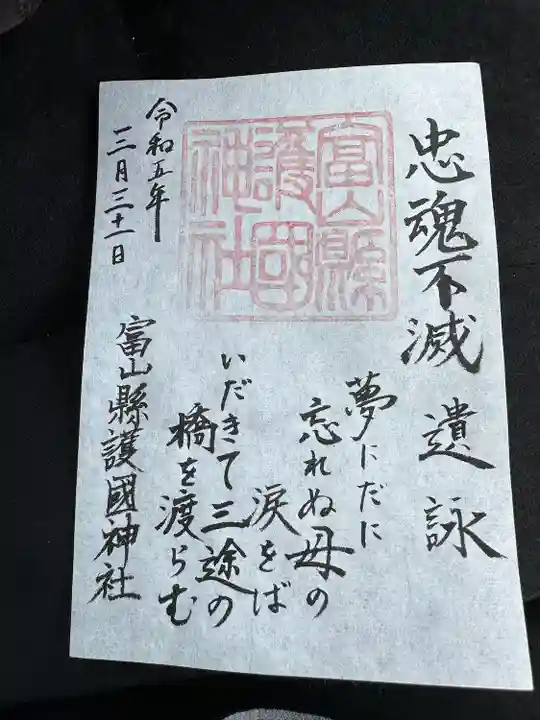 忠魂不滅 遺詠
夢にだに
忘れぬ母の
涙をば
いだきて三途の
橋を渡らむ
富山縣
護國
神社
令和五年
三月三十一日
富山縣護國神社